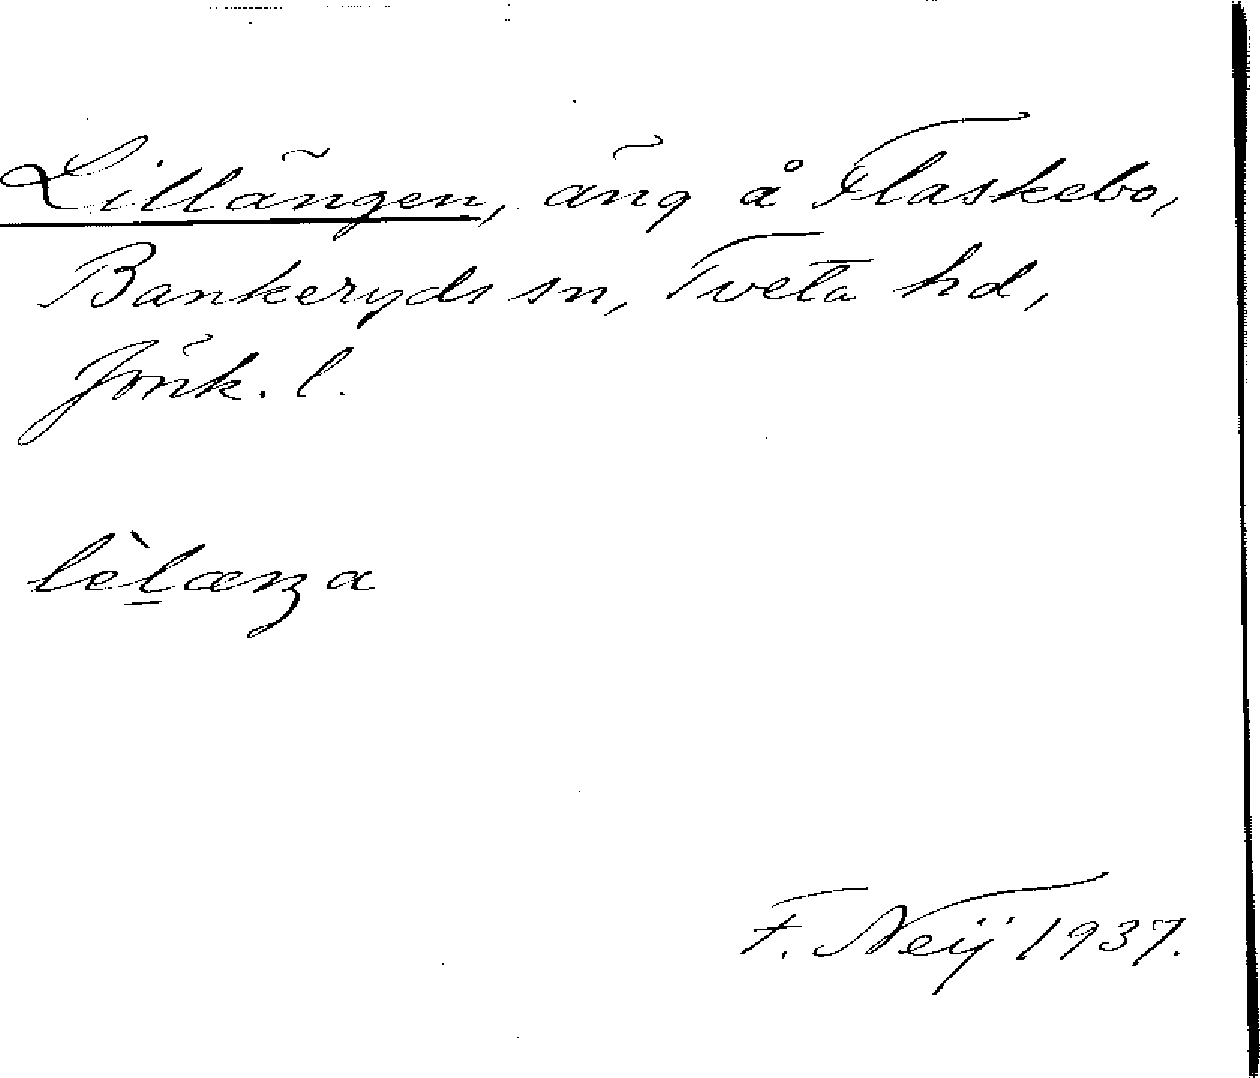 Lillängen, äng å Flaskebo,
Bankeryds sn, Tveta hd,
Jönk. l.
lèl̠æŋa
F. Neij 1937.